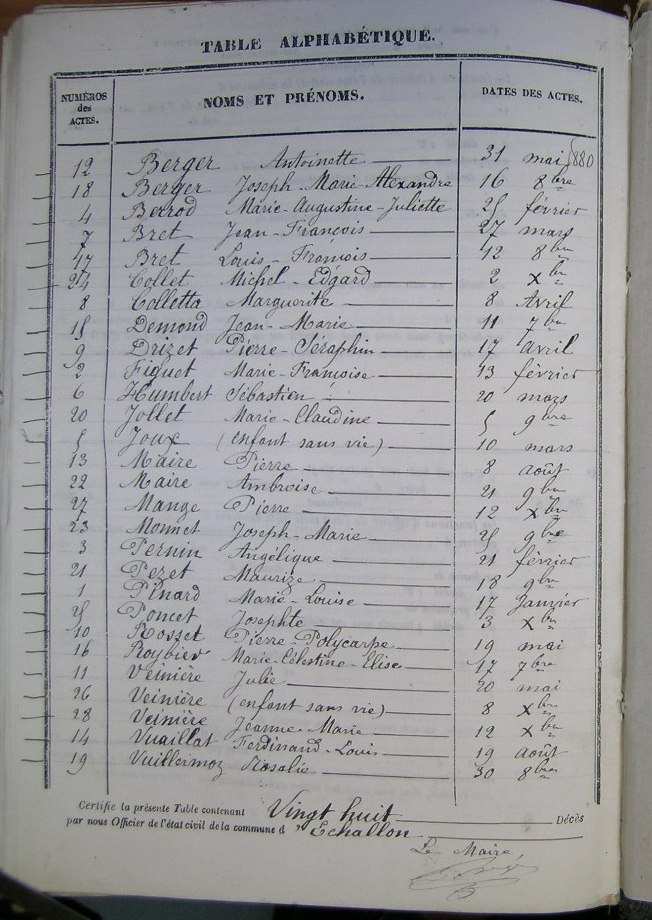 TABLE ALPHABÉTIQUE.
NUMÉROS des ACTES. NOMS ET PRÉNOMS. DATES DES ACTES.
12 Berger Antoinette 31 mai 1880
18 Berger Joseph-Marie-Alexandre 16 8bre
4 Berrod Marie-Augustine-Juliette 25 février
7 Bret Jean-François 27 mars
17 Bret Louis-François 12 8bre
24 Collet Michel-Edgard 2 Xbre
8 Colletta Marguerite 8 Avril
15 Demond Jean-Marie 11 7bre
9 Drizet Pierre-Séraphin 17 avril
2 Figuet Marie-Françoise 13 février
6 Humbert Sébastien 20 mars
20 Jollet Marie-Claudine 5 9bre
5 Joux (enfant sans vie) 10 mars
13 Maire Pierre 8 août
22 Maire Ambroise 21 9bre
27 Mange Pierre 12 Xbre
23 Monnet Joseph-Marie 25 9bre
3 Pernin Angélique 21 février
21 Pezet Maurize 18 9bre
1 Pinard Marie-Louise 17 Janvier
25 Poncet Josephte 3 Xbre
10 Rosset Pierre-Polycarpe 19 mai
16 Roybier Marie-Célestine-Elise 17 7bre
11 Veinière Julie 20 mai
26 Veinière (enfant sans vie) 8 Xbre
28 Veinière Jeanne-Marie 12 Xbre
14 Vuaillat Ferdinand-Louis 19 août
19 Vuillermoz Rosalie 30 8bre
Certifié la présente Table contenant Vingt huit Décès
par nous Officier de l'état civil de la commune d'Echallon
Le Maire,